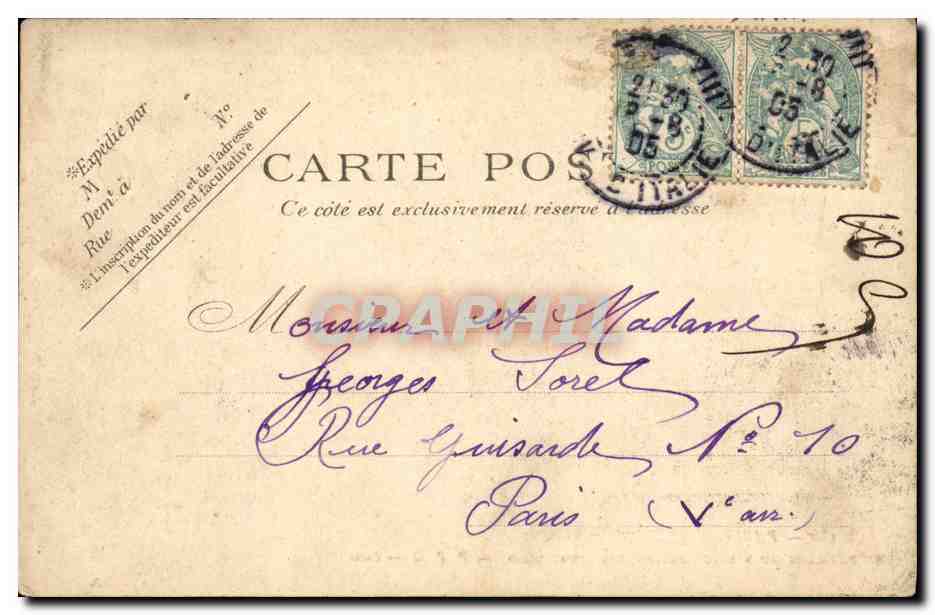 ※Expédié par
M N°
Demt à
Rue
※L'inscription du nom et de l'adresse de
l'expéditeur est facultative
CARTE POS
Ce côté est exclusivement réservé à l'adresse
21 30
-8
03
D'ITALIE
2 30
-8
03
D'ITALIE
CRAPHIL
Monsieur et Madame
Georges Sorel
Rue Guisarde N° 10
Paris (Ve arr.)